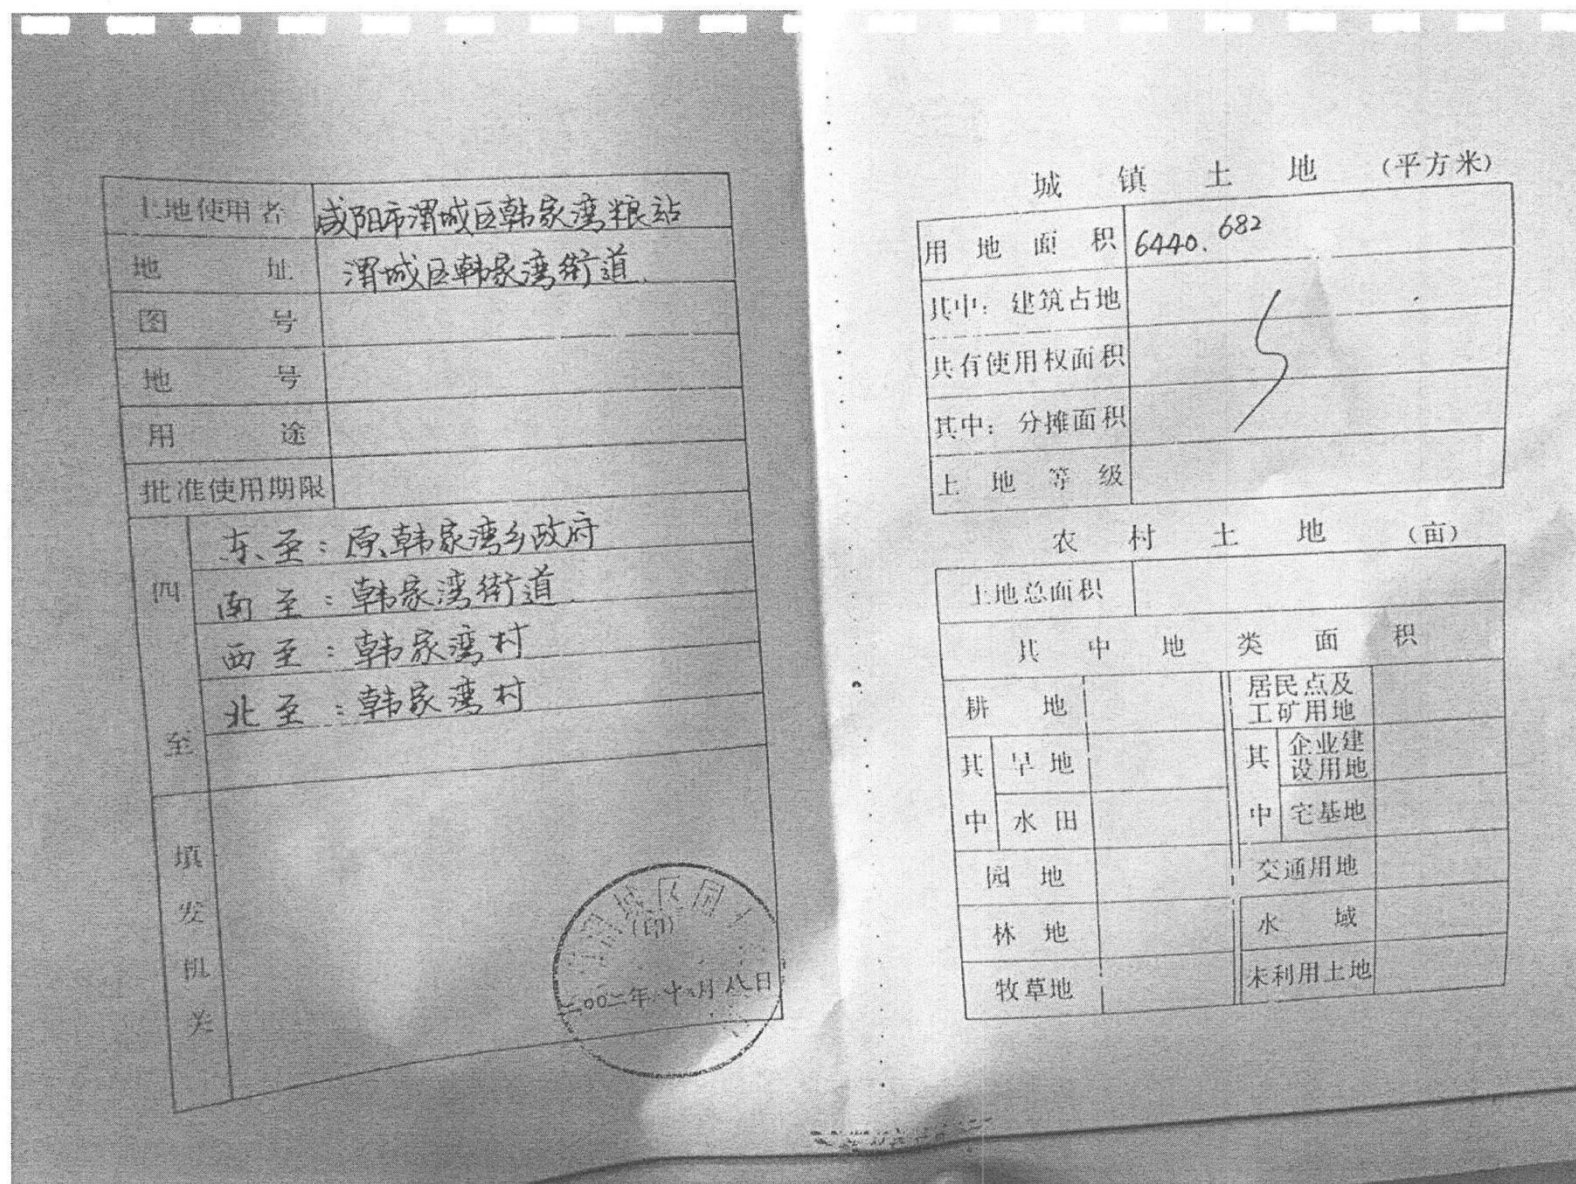 土地使用者 咸阳市渭城区韩家湾粮站
地址 渭城区韩家湾街道
图号
地号
用途
批准使用期限
四至
东至：原韩家湾乡政府
南至：韩家湾街道
西至：韩家湾村
北至：韩家湾村
填发机关
渭城区国土
(印)
二〇〇二年十月八日
城镇土地 (平方米)
用地面积 6440.682
其中：建筑占地
共有使用权面积
其中：分摊面积
土地等级
农村土地 (亩)
土地总面积
其中地类面积
耕地 居民点及工矿用地
其中 旱地 其中 企业建设用地
水田 宅基地
园地 交通用地
林地 水域
牧草地 未利用土地